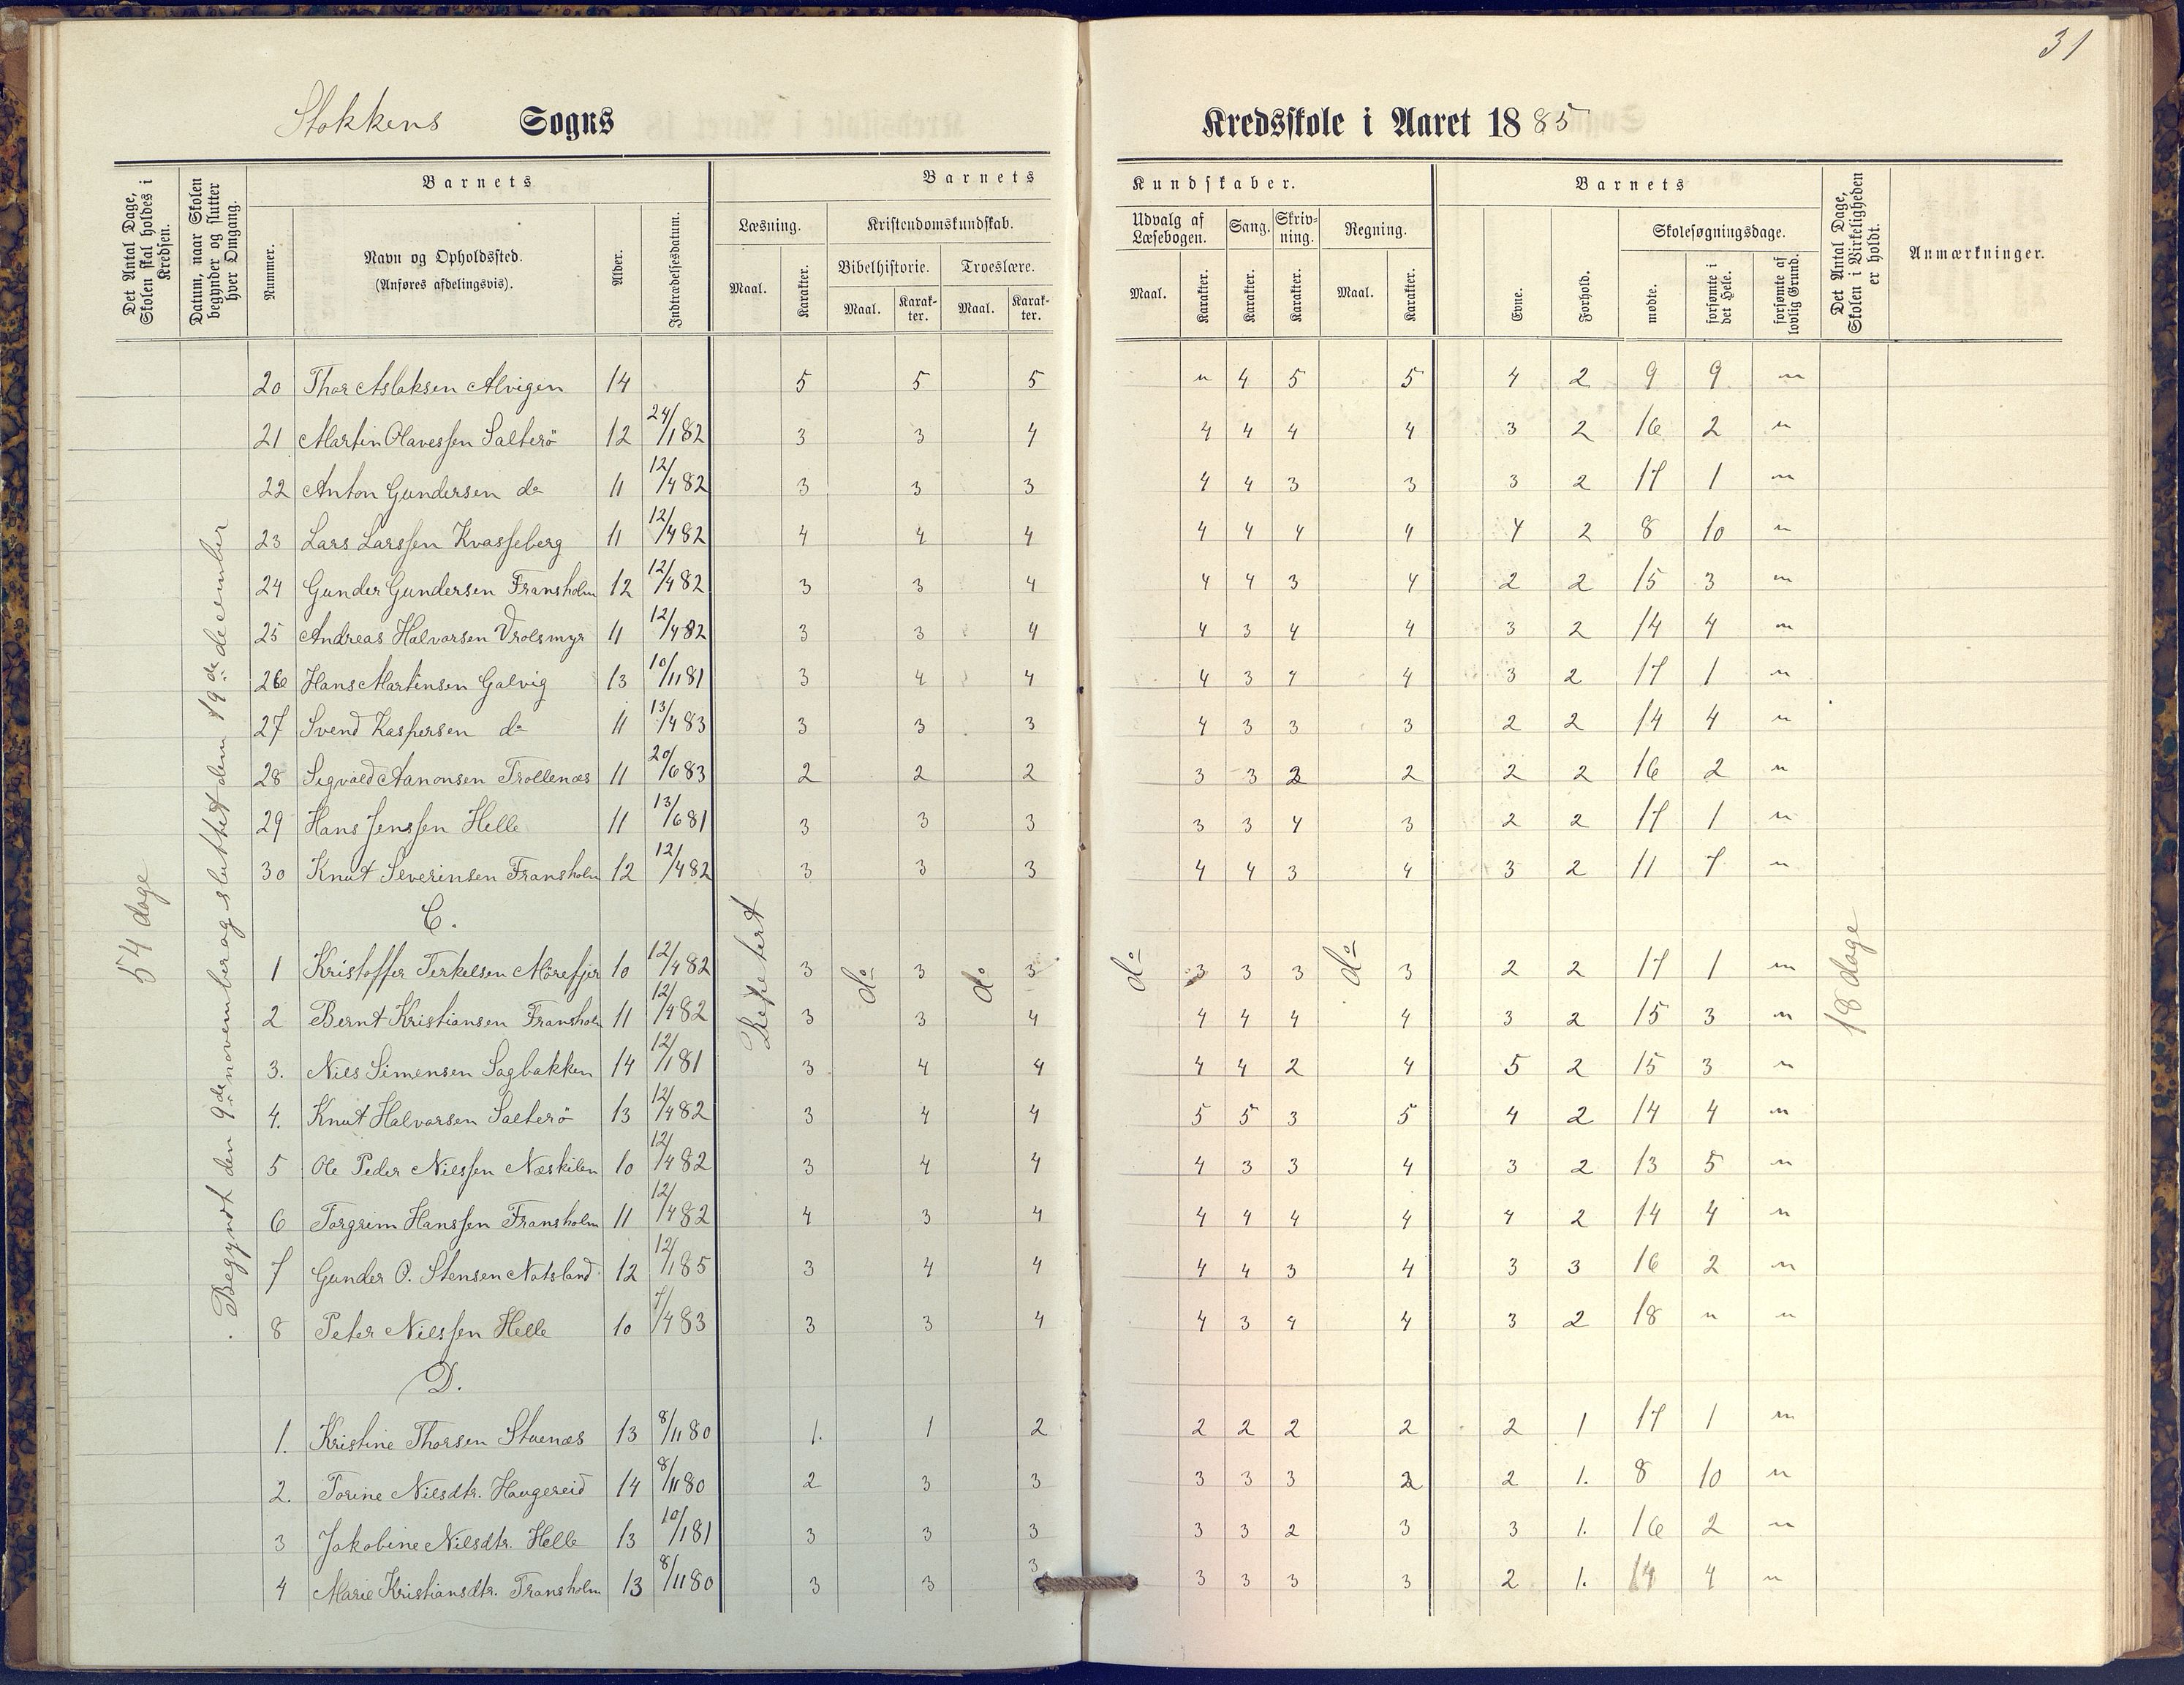 31
Stokkens Sogns Kredsskole i Aaret 1885
Det Antal Dage, Skolen skal holdes i Kredsen.
Datum, naar Skolen begynder og slutter hver Omgang.
Barnets
Nummer.
Navn og Opholdssted.
(Anføres afdelingsvis).
Alder.
Indtrædelsesdatum.
Barnets Kundskaber.
Læsning.
Maal.
Karakter.
Kristendomskundskab.
Bibelhistorie.
Maal.
Karak-ter.
Troeslære.
Maal.
Karak-ter.
Udvalg af Læsebogen.
Maal.
Karakter.
Sang.
Karakter.
Skriv-ning.
Karakter.
Regning.
Maal.
Karakter.
Barnets
Evne.
Forhold.
Skolesøgningsdage.
mødte.
forsømte i det Hele.
forsømte af lovlig Grund.
Det Antal Dage, Skolen i Virkeligheden er holdt.
Anmærkninger.
54 dage
Begyndt den 9de november og sluttet den 19de december
Repetert do do do do
18 dage
20 Thor Aslaksen Alvigen 14 5 5 5 " 4 5 5 4 2 9 9 "
21 Martin Olavessen Salterö 12 24/1 82 3 3 4 4 4 4 4 3 2 16 2 "
22 Anton Gundersen do 11 12/4 82 3 3 3 4 4 3 3 3 2 17 1 "
23 Lars Larssen Kvasseberg 11 12/4 82 4 4 4 4 4 4 4 4 2 8 10 "
24 Gunder Gundersen Fransholm 12 12/4 82 3 3 4 4 4 3 4 2 2 15 3 "
25 Andreas Halvorsen Vrolsmyr 11 12/4 82 3 3 4 4 3 4 4 3 2 14 4 "
26 Hans Martinsen Galvig 13 10/11 81 3 4 4 4 3 4 4 3 2 17 1 "
27 Svend Kaspersen do 11 13/4 83 3 3 3 4 3 3 3 2 2 14 4 "
28 Sigvald Aanonsen Trollenæs 11 20/6 83 2 2 2 3 3 2 2 2 2 16 2 "
29 Hans Jenssen Helle 11 13/6 81 3 3 3 3 3 4 3 2 2 17 1 "
30 Knut Severinsen Fransholm 12 12/4 82 3 3 3 4 4 3 4 3 2 11 7 "
C.
1 Kristoffer Terkelsen Mörefjer 10 12/4 82 3 3 3 3 3 3 3 2 2 17 1 "
2 Bernt Kristiansen Fransholm 11 12/4 82 3 3 4 4 4 4 4 3 2 15 3 "
3. Niels Simensen Sagbakken 14 12/1 81 3 4 4 4 4 2 4 5 2 15 3 "
4. Knut Halvorsen Salterö 13 12/4 82 3 4 4 5 5 3 5 4 2 14 4 "
5 Ole Peder Nielssen Næskilen 10 12/4 82 3 4 4 4 3 3 4 3 2 13 5 "
6 Torgrim Hanssen Fransholm 11 12/4 82 4 3 4 4 4 4 4 4 2 14 4 "
7 Gunder O. Stensen Natsland 12 12/1 85 3 4 4 4 4 3 4 3 3 16 2 "
8 Peter Nielssen Helle 10 7/4 83 3 3 4 4 3 4 4 3 2 18 " "
D.
1. Kristine Thorsen Stuenæs 13 8/11 80 1. 1 2 2 2 2 2 2 1 17 1 "
2. Torine Nielsdtr. Haugereid 14 8/11 80 2 3 3 3 3 3 2 2 1. 8 10 "
3 Jakobine Nilsdtr. Helle 13 10/1 81 3 3 3 3 3 2 3 3 1. 16 2 "
4 Marie Kristiansdtr. Fransholm 13 8/11 80 3 3 3 3 3 3 3 2 1. 14 4 "